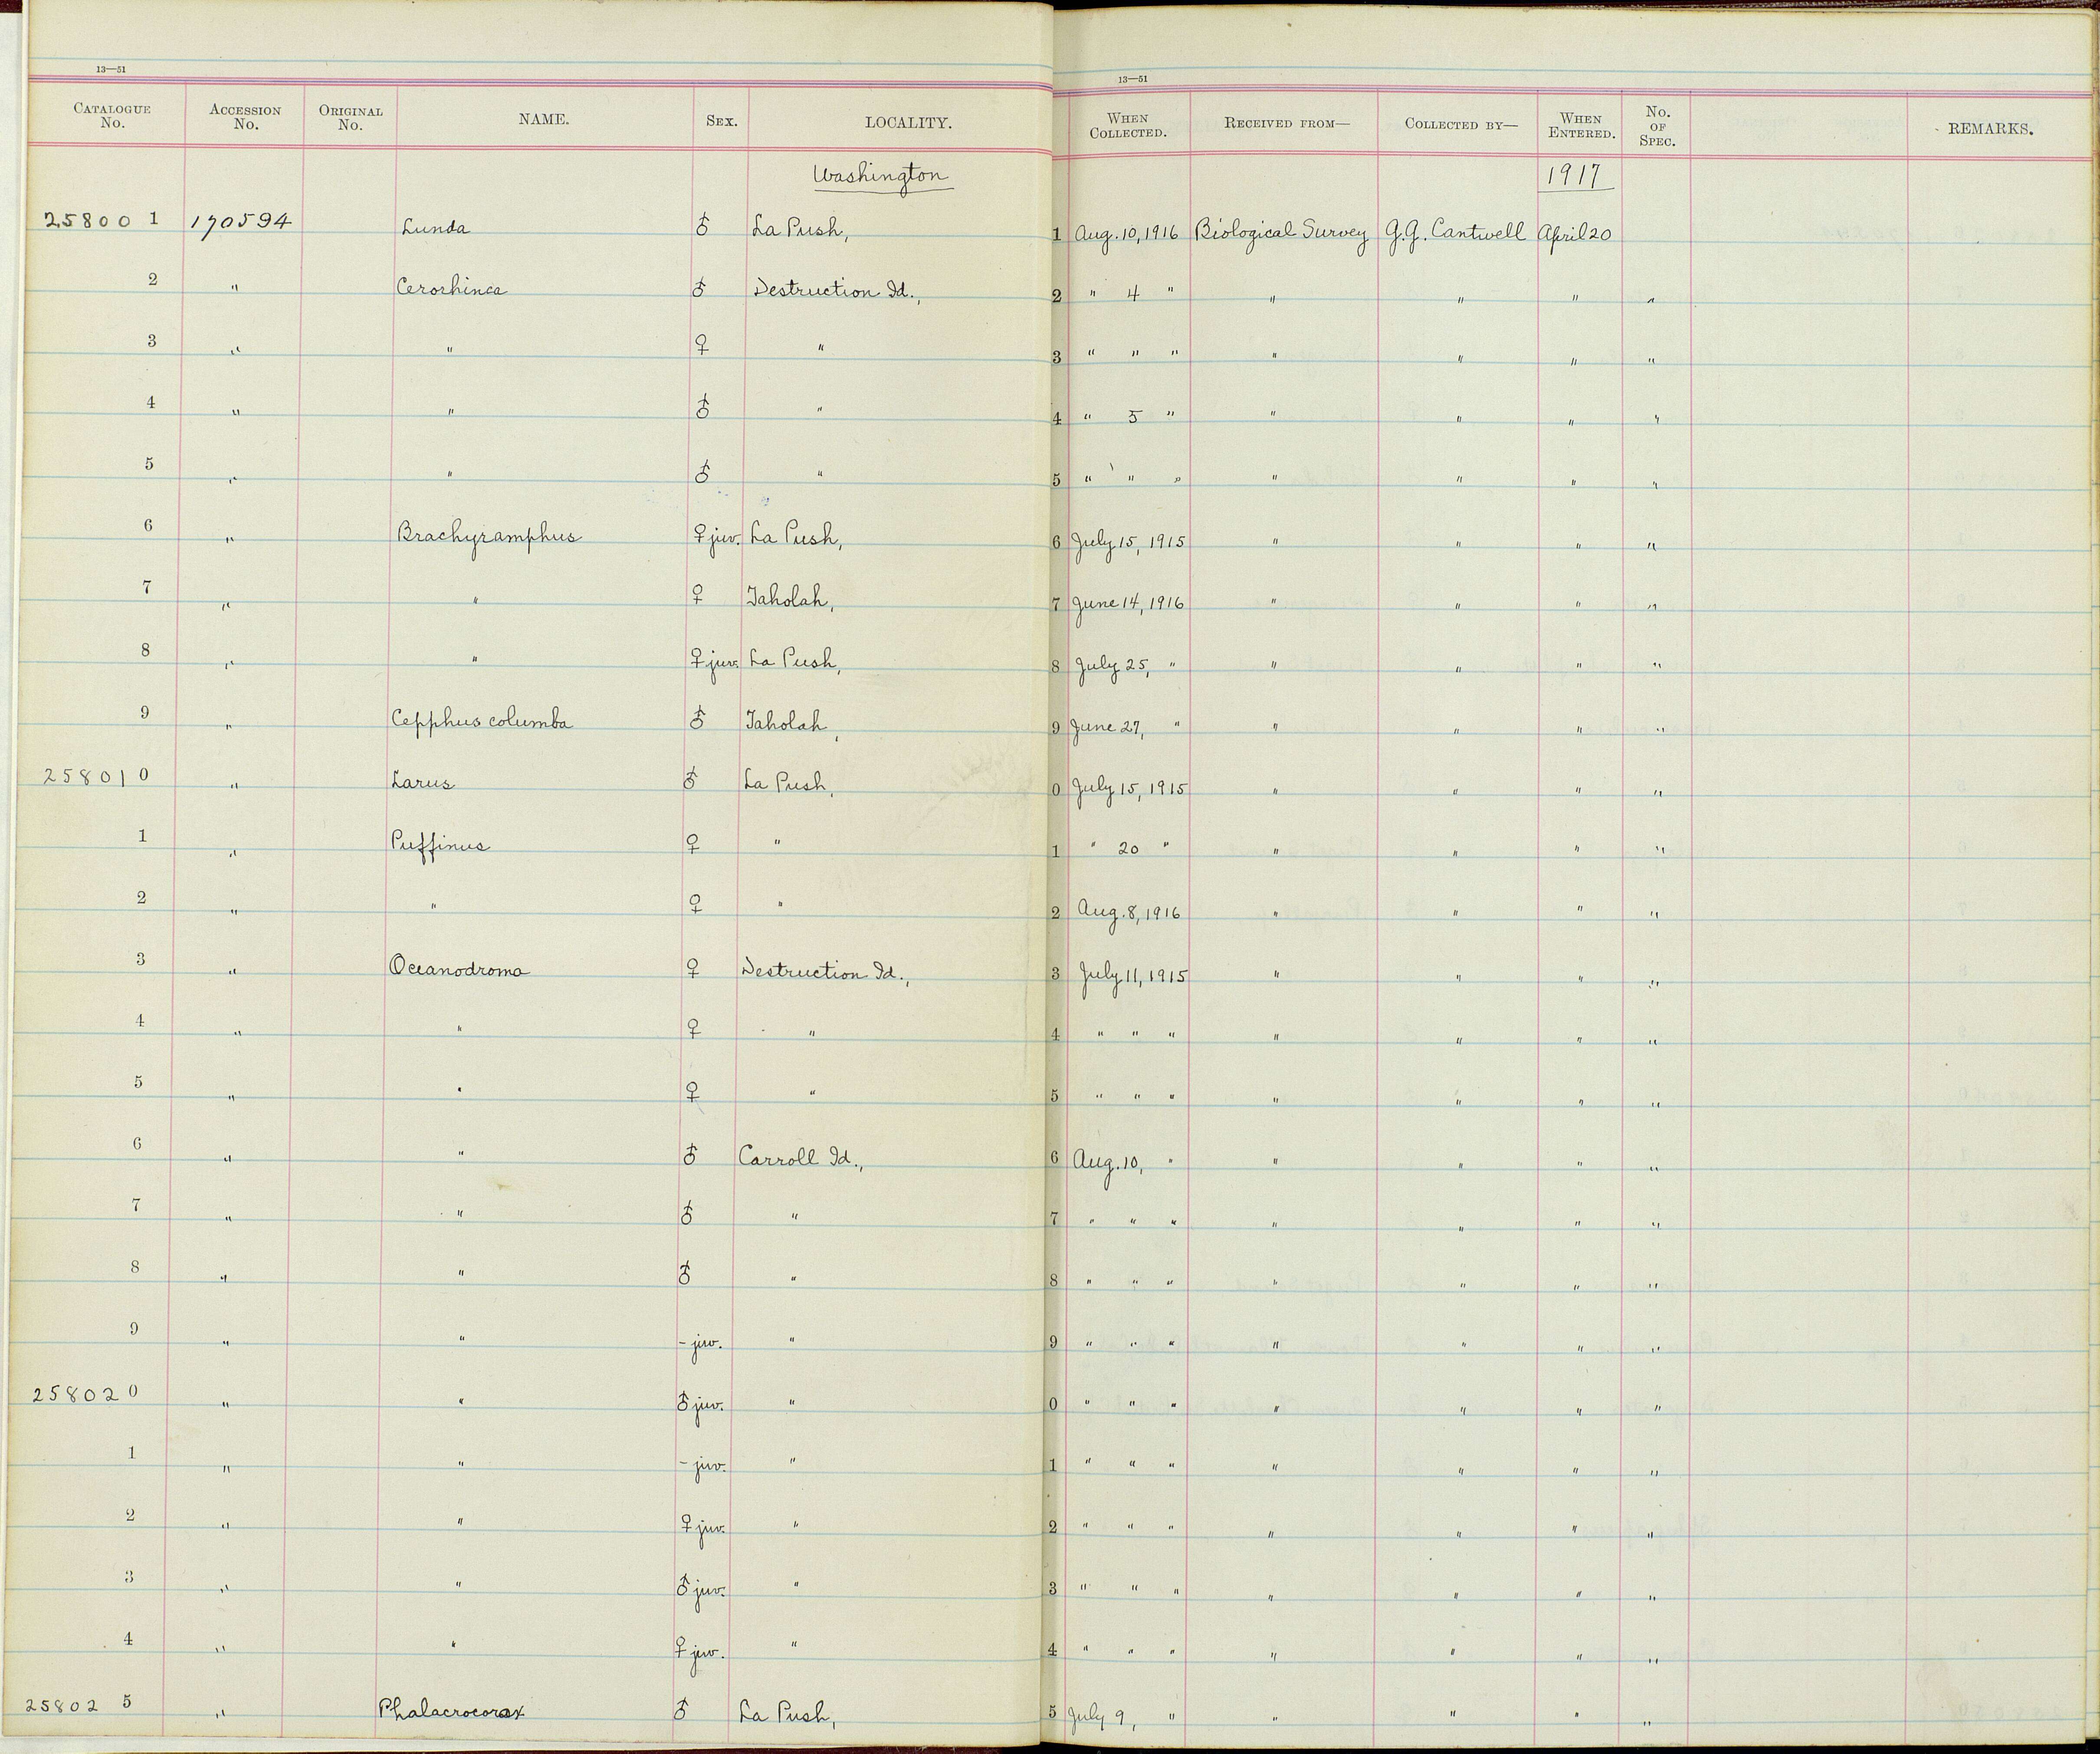 13—51 13—51
CATALOGUE No. ACCESSION No. ORIGINAL No. NAME. SEX. LOCALITY. WHEN COLLECTED. RECEIVED FROM— COLLECTED BY— WHEN ENTERED. No. OF SPEC. REMARKS.
Washington 1917
258001 170594 Lunda ♂ La Push, 1 Aug. 10, 1916 Biological Survey G.G. Cantwell April 20
2 " Cerorhinca ♂ Destruction Id., 2 " 4 " " " " "
3 " " ♀ " 3 " " " " " " "
4 " " ♂ " 4 " 5 " " " " "
5 " " ♂ " 5 " " " " " " "
6 " Brachyramphus ♀ juv. La Push, 6 July 15, 1915 " " " "
7 " " ♀ Taholah, 7 June 14, 1916 " " " "
8 " " ♀ juv. La Push, 8 July 25, " " " " "
9 " Cepphus columba ♂ Taholah, 9 June 27, " " " " "
258010 " Larus ♂ La Push, 0 July 15, 1915 " " " "
1 " Puffinus ♀ " 1 " 20 " " " " "
2 " " ♀ " 2 Aug. 8, 1916 " " " "
3 " Oceanodroma ♀ Destruction Id., 3 July 11, 1915 " " " "
4 " " ♀ " 4 " " " " " " "
5 " " ♀ " 5 " " " " " " "
6 " " ♂ Carroll Id., 6 Aug. 10, " " " " "
7 " " ♂ " 7 " " " " " " "
8 " " ♂ " 8 " " " " " " "
9 " " - juv. " 9 " " " " " " "
258020 " " ♂ juv. " 0 " " " " " " "
1 " " - juv. " 1 " " " " " " "
2 " " ♀ juv. " 2 " " " " " " "
3 " " ♂ juv. " 3 " " " " " " "
4 " " ♀ juv. " 4 " " " " " " "
258025 " Phalacrocorax ♂ La Push, 5 July 9, " " " " "